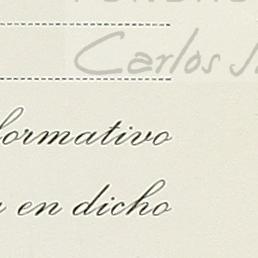 Carlos
formativo
en dicho